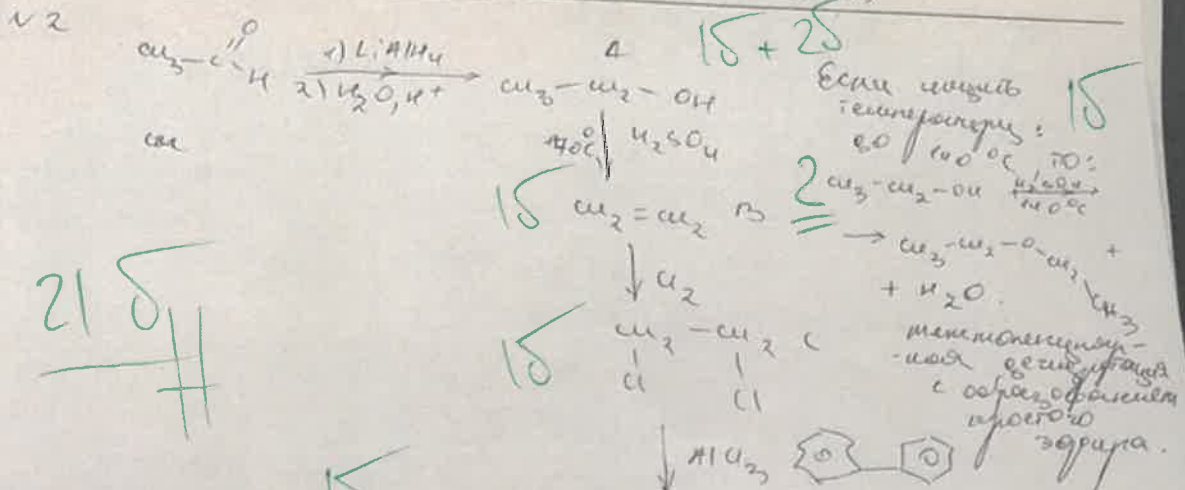 №2
CH3-C(=O)-H 1) LiAlH4 2) H2O, H+ → CH3-CH2-OH A
1б + 2б
170°C ↓ H2SO4
1б CH2=CH2 B
↓ Cl2
1б CH2-CH2 C
Cl Cl
↓ AlCl3
21 б
Если
температуру
1б
до 140°C, то:
2 CH3-CH2-OH H2SO4 140°C →
→ CH3-CH2-O-CH2-CH3 +
+ H2O.
межмолекуляр-
-ная дегидратация
с образованием
простого
эфира.